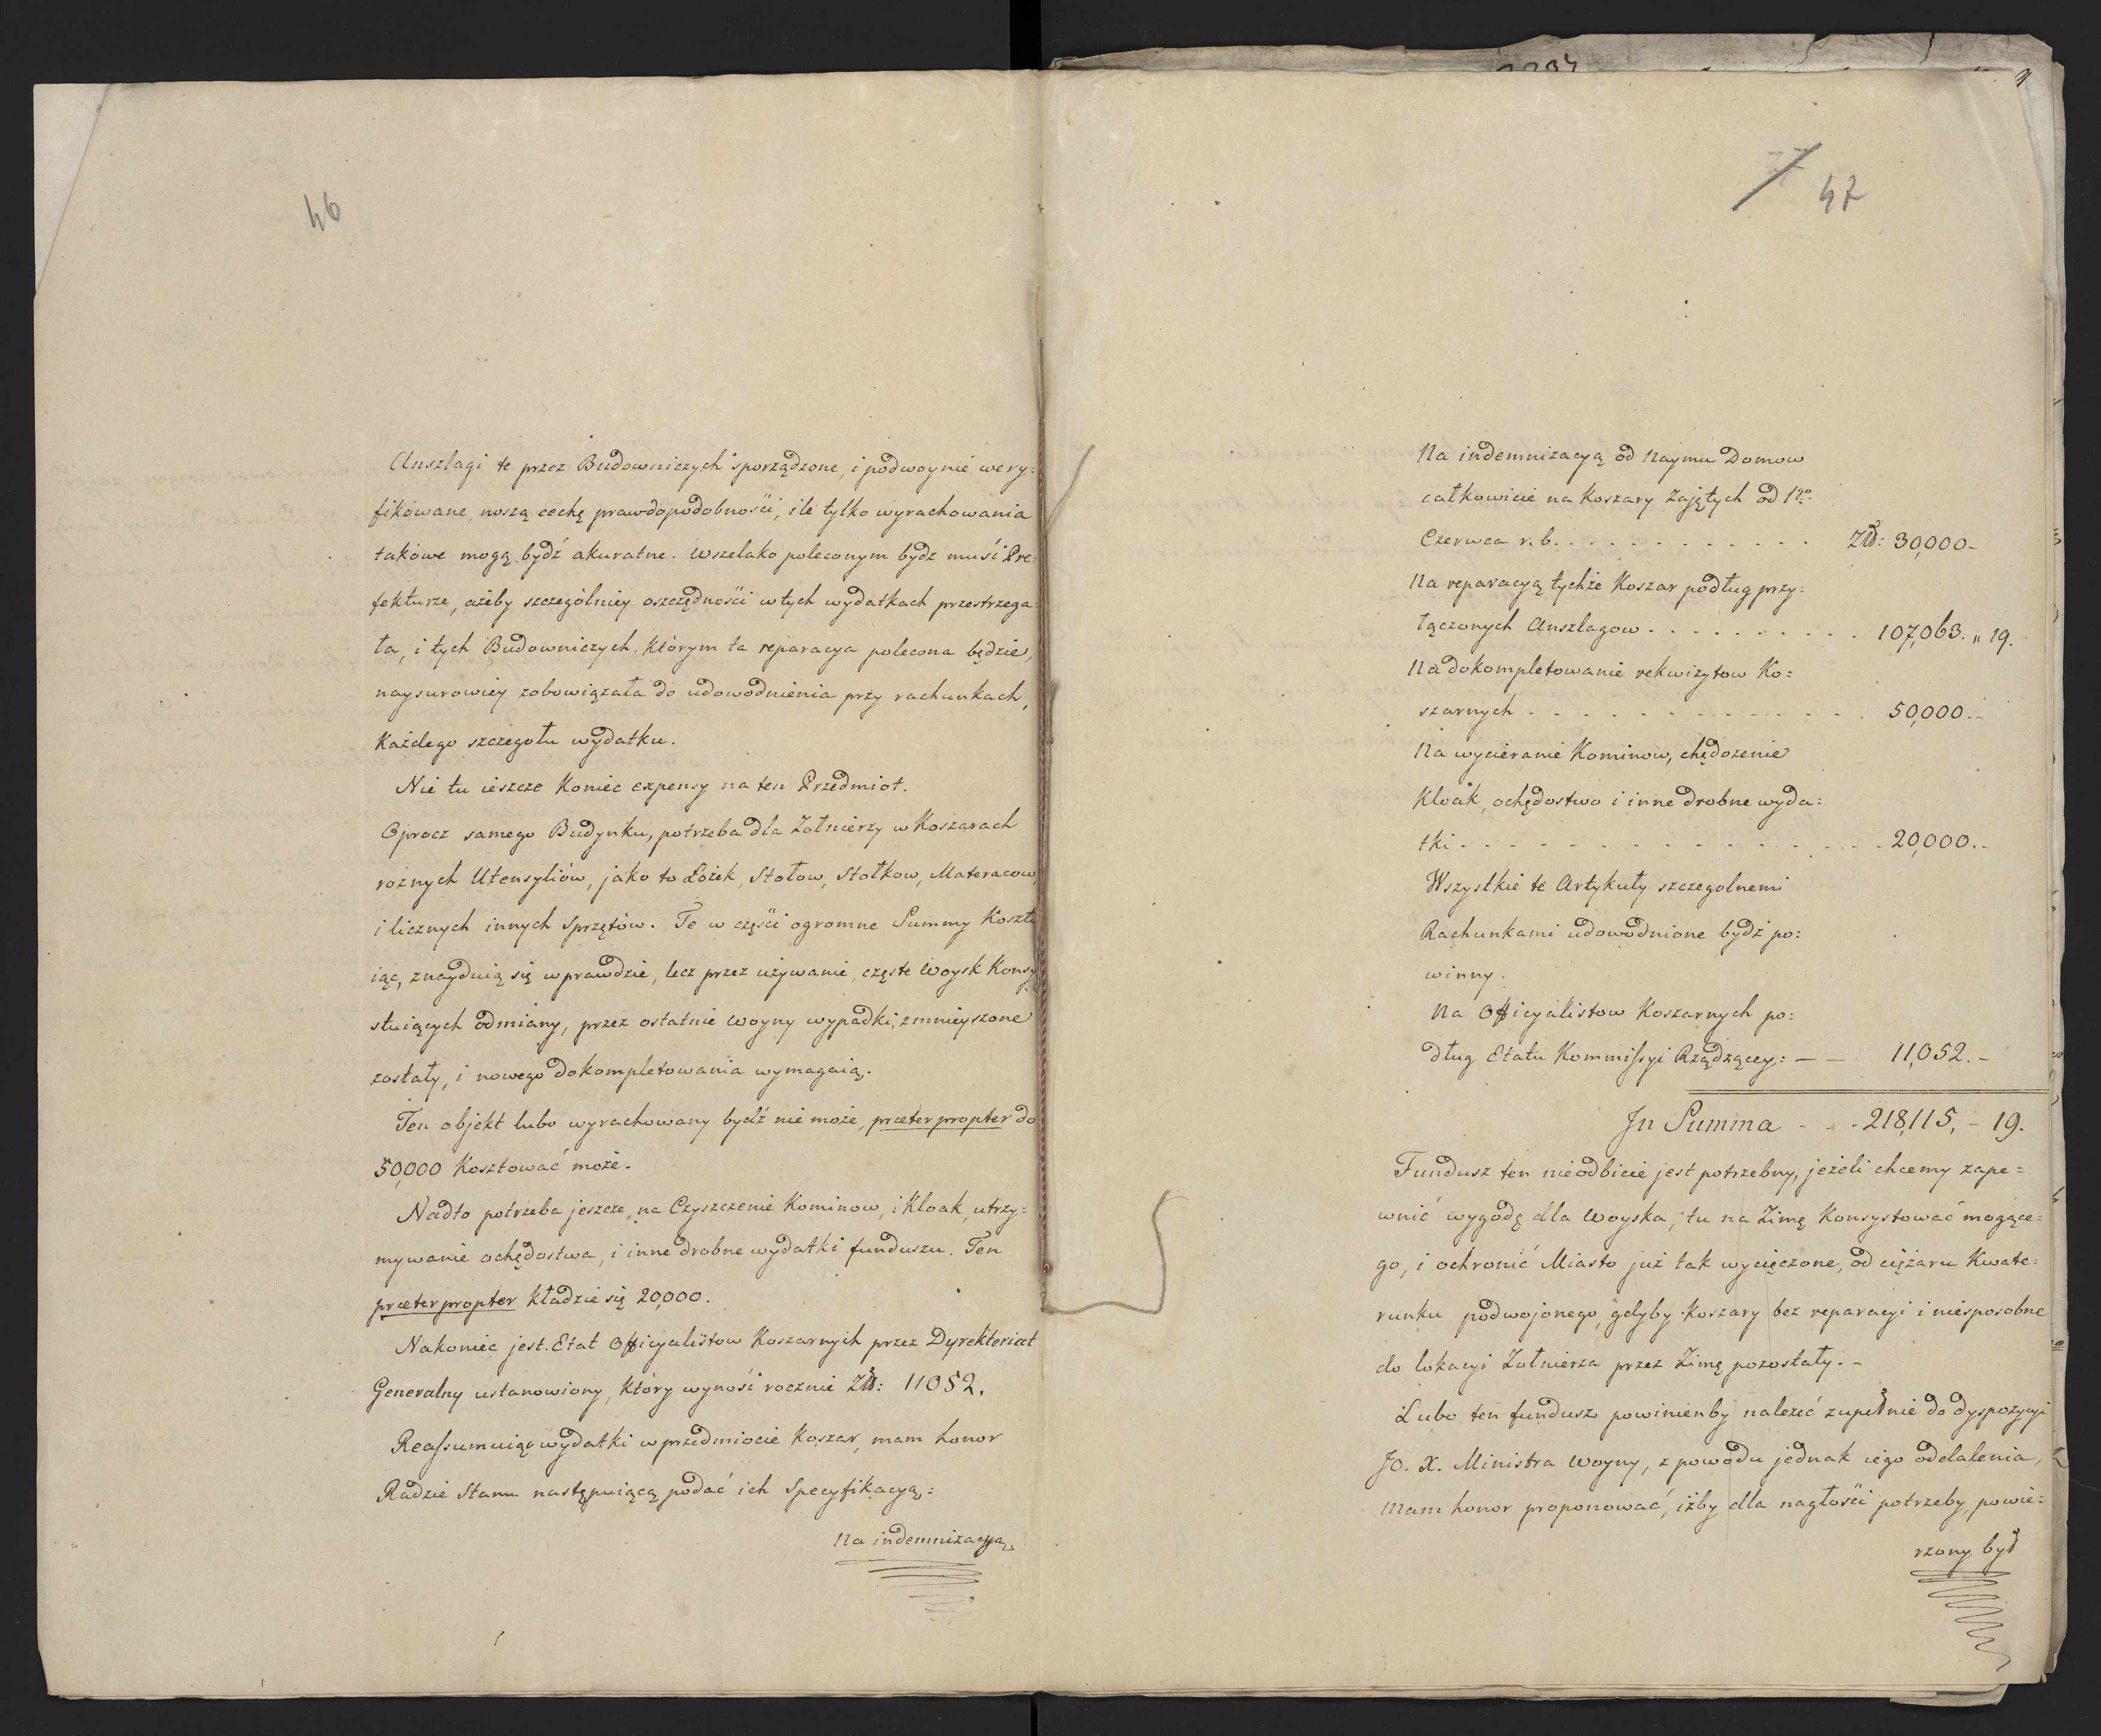 46
Anszlagi te przez Budowniczych sporządzone, i podwoynie wery=
fikowane, noszą cechę prawdopodobności, ile tylko wyrachowania
takowe mogą bydź akuratne. Wszelako poleconym bydz musi Pre=
fekturze, ażeby szczególniey oszczędności w tych wydatkach przestrzega
ła, i tych Budowniczych, którym ta reparacya polecona będzie,
naysurowiey zobowiązała do udowodnienia przy rachunkach,
Każdego szczegołu wydatku.
Nie tu ieszcze Koniec expensy na ten Przedmiot.
Oprocz samego Budynku, potrzeba dla Żołnierzy w Koszarach
rożnych Utensyliów, jako to Łóżek, Stołow, Stołkow, Materacow,
i licznych innych Sprzętów. Te w części ogromne Summy Koszto
iąc, znayduią się wprawdzie, lecz przez używanie, częste Woysk Konsy
stuiących odmiany, przez ostatnie woyny wypadki, zmnieyszone
zostały, i nowego dokompletowania wymagaią.
Ten objekt lubo wyrachowany bydź nie może, præter propter do
50,000 Kosztować może.
Nadto potrzeba jeszcze, na Czyszczenie Kominow, i Kloak, utrzy=
mywanie ochędostwa, i inne drobne wydatki funduszu. Ten
præter propter kładzie się 20,000.
Nakoniec jest Etat Officyalistow Koszarnych przez Dyrektoriat
Generalny ustanowiony, który wynośi rocznie Zł: 11052.
Reassumuiąc wydatki w przedmiocie Koszar, mam honor
Radzie Stanu następuiącą podać ich Specyfikacyą:
Na indemnizacyą
47
Na indemnizacyą od Naymu Domow
całkowicie na Koszary Zajętych od 1go
Czerwca r. b. . . . . . . . . . . . Zł: 30,000 -
Na reparacyą tychże Koszar podług przy=
łączonych Anszlagow . . . . . . . . . 107,063. „ 19.
Na dokompletowanie rekwizytow Ko=
szarnych . . . . . . . . . . . . 50,000. -
Na wycieranie Kominow, chędożenie
Kloak, ochędostwo i inne drobne wyda=
tki . . . . . . . . . . . . . . . 20,000. -
Wszystkie te Artykuły szczegolnemi
Rachunkami udowodnione bydź po=
winny.
Na Officyalistow Koszarnych po=
dług Etatu Kommissyi Rządzącey: — — 11,052. -
In Summa - - . 218,115, - 19.
Fundusz ten nieodbicie jest potrzebny, jeżeli chcemy zape=
wnić wygodę dla Woyska, tu na Zimę Konsystować mogące=
go, i ochronić Miasto już tak wycięczone, od ciężaru Kwate=
runku podwojonego, gdyby Koszary bez reparacyi i niesposobne
do lokacyi Żołnierza przez Zimę pozostały. -
Lubo ten fundusz powinienby należeć zupełnie do dyspozycyi
JO. X. Ministra Woyny, z powodu jednak iego oddalenia,
Mam honor proponować, iżby dla nagłości potrzeby, powie=
rzony był